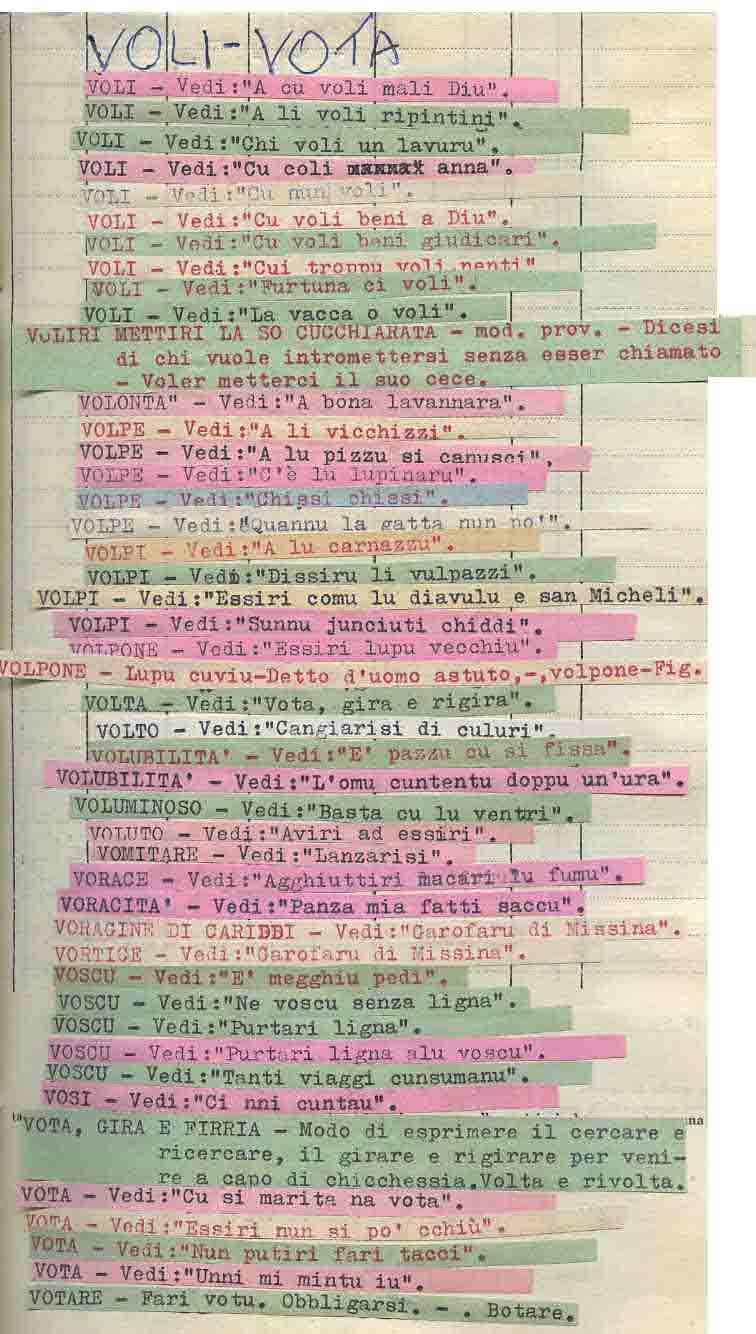 VOLI-VOTA
VOLI - Vedi:"A cu voli mali Diu".
VOLI - Vedi:"A li voli ripintini".
VOLI - Vedi:"Chi voli un lavuru".
VOLI - Vedi:"Cu coli anna".
VOLI - Vedi:"Cu nun voli".
VOLI - Vedi:"Cu voli beni a Diu".
VOLI - Vedi:"Cu voli beni giudicari".
VOLI - Vedi:"Cui troppu voli nenti"
VOLI - Vedi:"Furtuna ci voli".
VOLI - Vedi:"La vacca o voli".
VOLIRI METTIRI LA SO CUCCHIARATA - mod. prov. - Dicesi
di chi vuole intromettersi senza esser chiamato
- Voler metterci il suo cece.
VOLONTA" - Vedi:"A bona lavannara".
VOLPE - Vedi:"A li vicchizzi".
VOLPE - Vedi:"A lu pizzu si canusci".
VOLPE - Vedi:"C'è lu lupinaru".
VOLPE - Vedi:"Chissi chissi".
VOLPE - Vedi:"Quannu la gatta nun po'".
VOLPI - Vedi:"A lu carnazzu".
VOLPI - Vedi:"Dissiru li vulpazzi".
VOLPI - Vedi:"Essiri comu lu diavulu e san Micheli".
VOLPI - Vedi:"Sunnu junciuti chiddi".
VOLPONE - Vedi:"Essiri lupu vecchiu".
VOLPONE - Lupu cuviu-Detto d'uomo astuto,-,volpone-Fig.
VOLTA - Vedi:"Vota, gira e rigira".
VOLTO - Vedi:"Cangiarisi di culuri".
VOLUBILITA' - Vedi:"E' pazzu cu si fissa".
VOLUBILITA' - Vedi:"L'omu cuntentu doppu un'ura".
VOLUMINOSO - Vedi:"Basta cu lu ventri".
VOLUTO - Vedi:"Aviri ad essiri".
VOMITARE - Vedi:"Lanzarisi".
VORACE - Vedi:"Agghiuttiri macari lu fumu".
VORACITA' - Vedi:"Panza mia fatti saccu".
VORAGINE DI CARIDDI - Vedi:"Garofaru di Missina".
VORTICE - Vedi:"Garofaru di Missina".
VOSCU - Vedi:"E' megghiu pedi".
VOSCU - Vedi:"Ne voscu senza ligna".
VOSCU - Vedi:"Purtari ligna".
VOSCU - Vedi:"Purtari ligna alu voscu".
VOSCU - Vedi:"Tanti viaggi cunsumanu".
VOSI - Vedi:"Ci nni cuntau".
VOTA, GIRA E FIRRIA - Modo di esprimere il cercare e
ricercare, il girare e rigirare per veni-
re a capo di chicchessia.Volta e rivolta.
VOTA - Vedi:"Cu si marita na vota".
VOTA - Vedi:"Essiri nun si po' cchiù".
VOTA - Vedi:"Nun putiri fari tacci".
VOTA - Vedi:"Unni mi mintu iu".
VOTARE - Fari votu. Obbligarsi. - . Botare.